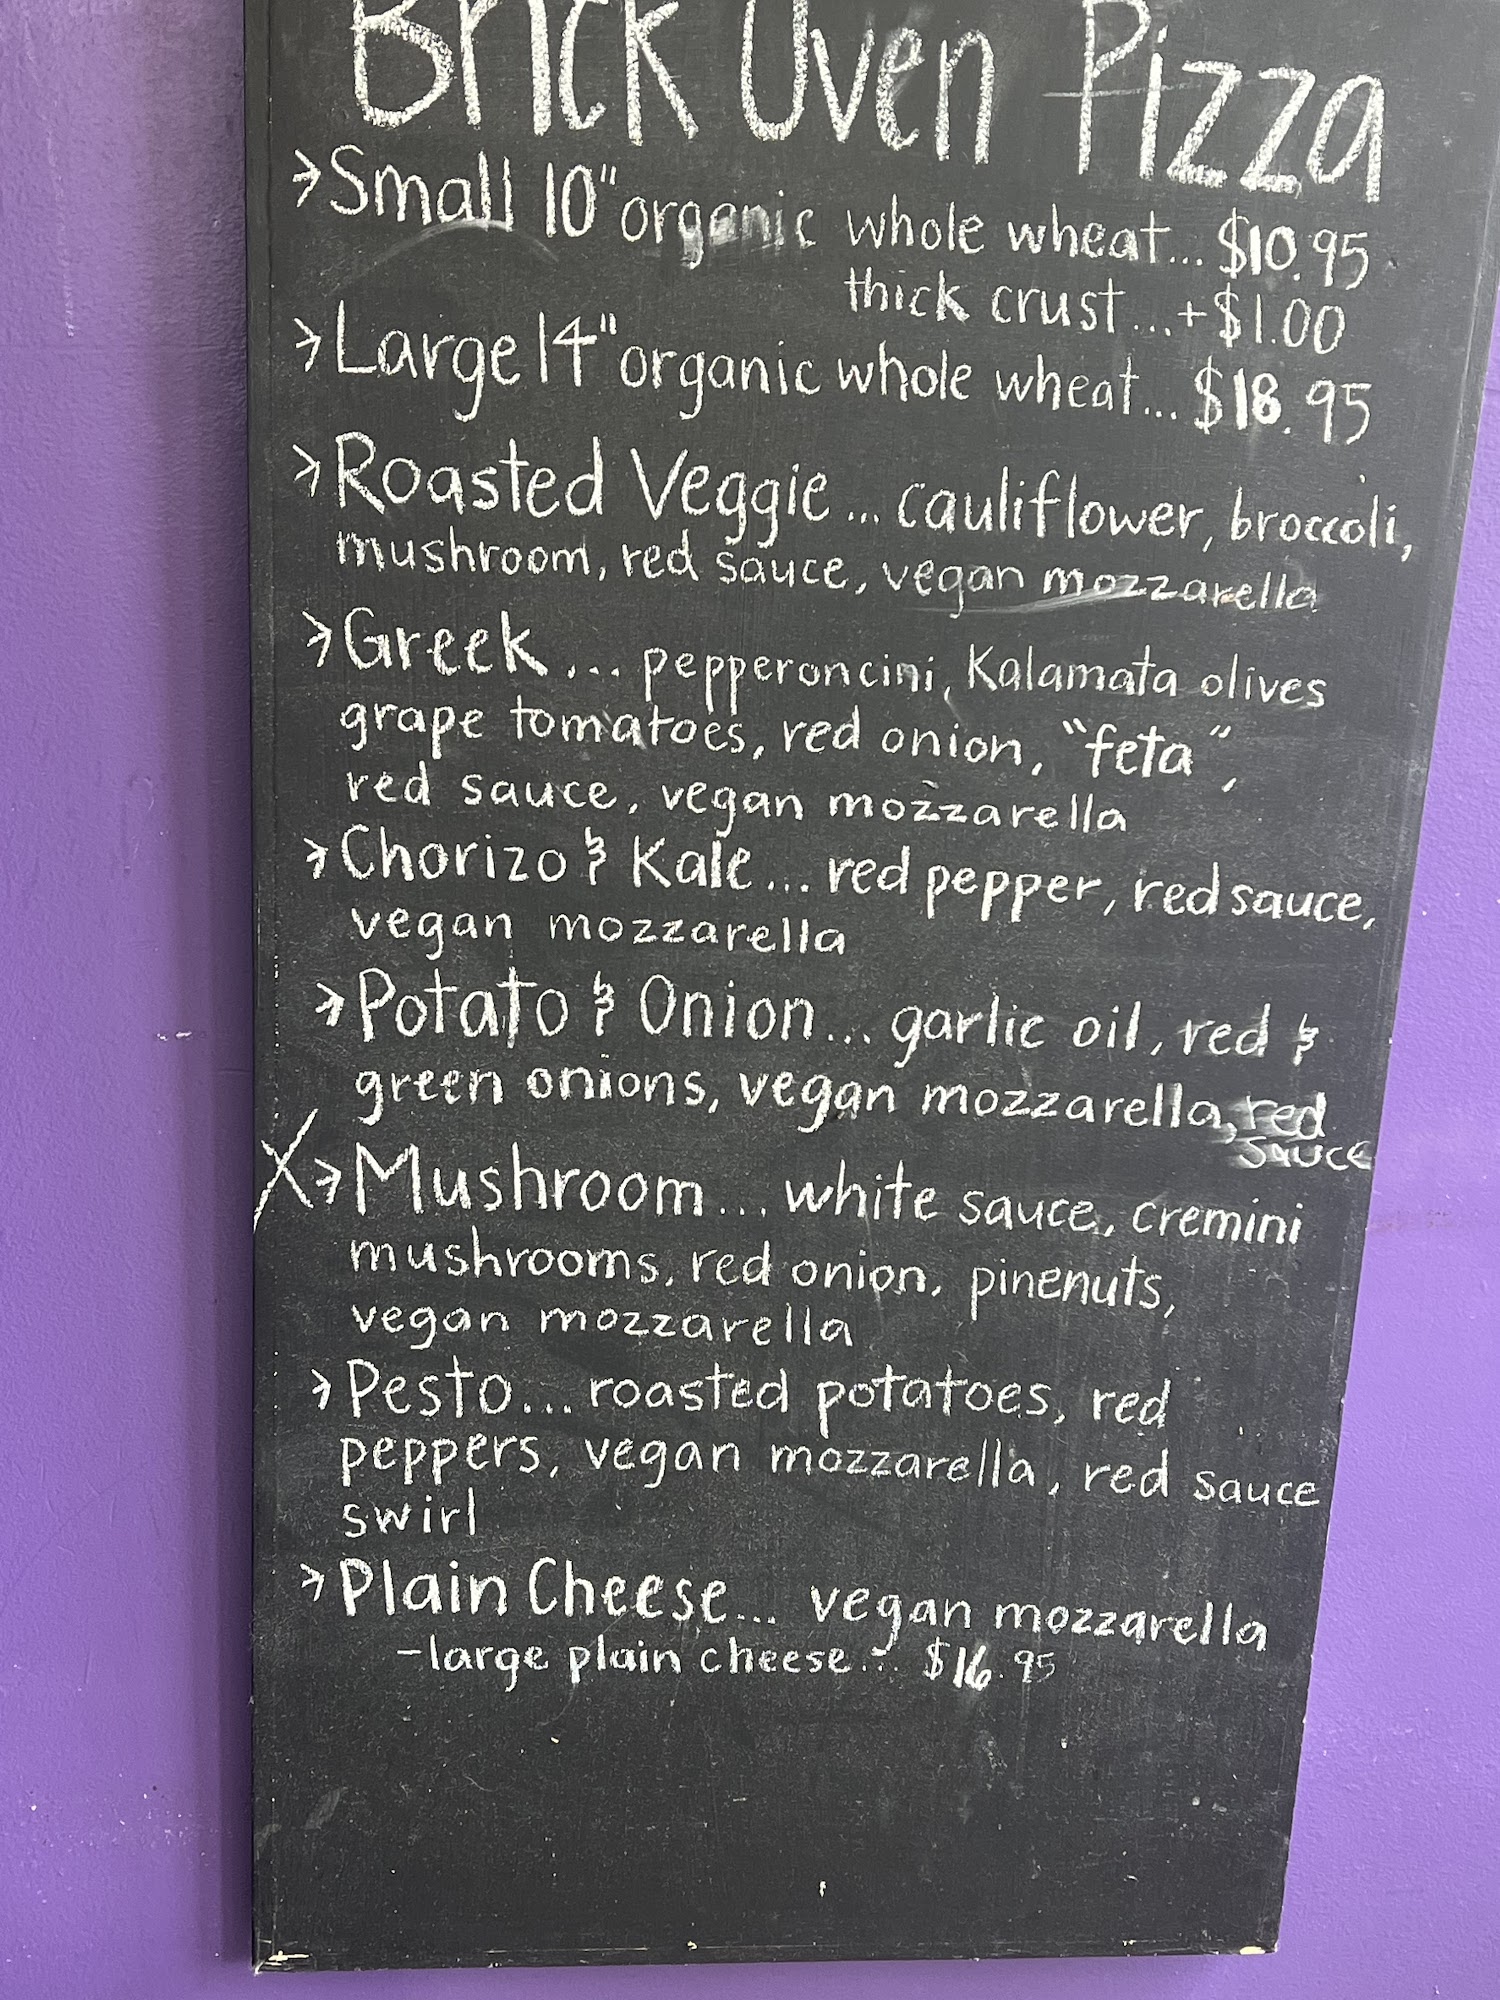 Brick Oven Pizza
→Small 10" organic whole wheat... $10.95
thick crust...+$1.00
→Large 14" organic whole wheat... $18.95
→Roasted Veggie... cauliflower, broccoli,
mushroom, red sauce, vegan mozzarella
→Greek... pepperoncini, Kalamata olives
grape tomatoes, red onion, "feta",
red sauce, vegan mozzarella
→Chorizo & Kale... red pepper, red sauce,
vegan mozzarella
→Potato & Onion... garlic oil, red &
green onions, vegan mozzarella, red
sauce
X→Mushroom... white sauce, cremini
mushrooms, red onion, pinenuts,
vegan mozzarella
→Pesto... roasted potatoes, red
peppers, vegan mozzarella, red sauce
swirl
→Plain Cheese... vegan mozzarella
-large plain cheese... $16.95